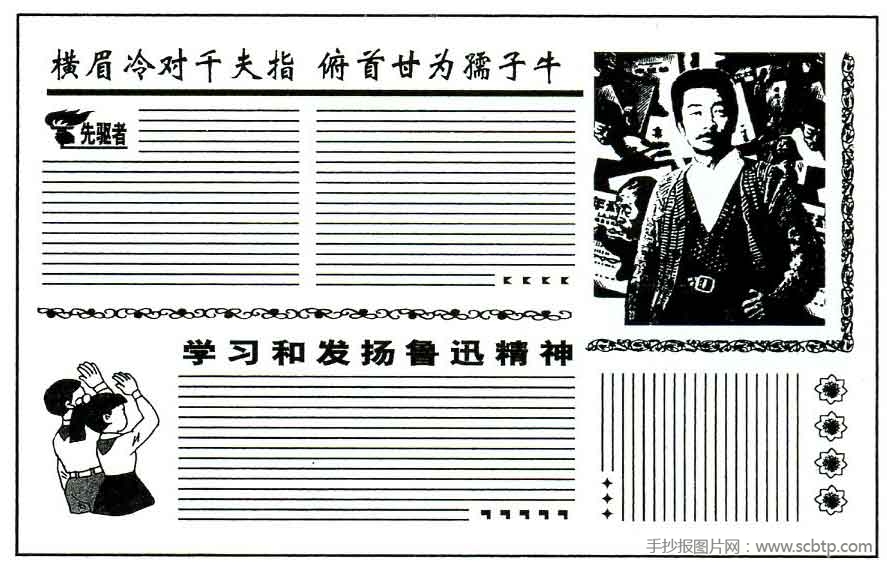 横眉冷对千夫指 俯首甘为孺子牛
先驱者
学习和发扬鲁迅精神
手抄报图片网：www.scbtp.com